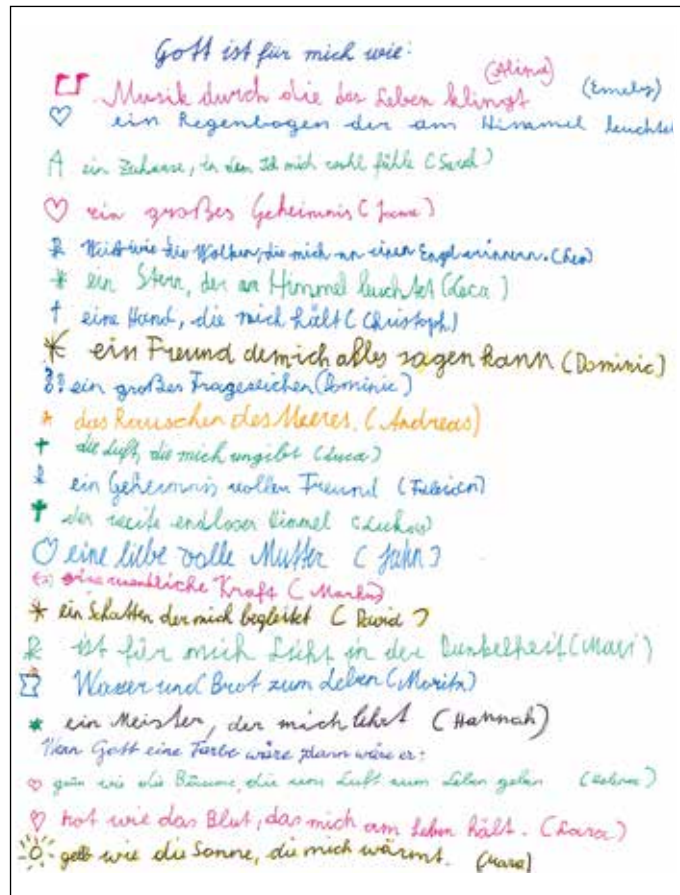 Gott ist für mich wie:
Musik durch die das Leben klingt (Alina)
ein Regenbogen der am Himmel leuchtet (Emely)
ein Zuhause, in dem Ich mich wohl fühle (Sarah)
ein großes Geheimnis (
wie die Wolken, die mich an einen Engel erinnern. (Lea)
ein Stern, der am Himmel leuchtet (Luca)
eine Hand, die mich hält (Christoph)
ein Freund dem ich alles sagen kann (Dominic)
?? ein großes Fragezeichen (Dominic)
das Rauschen des Meeres. (Andreas)
die Luft, die mich umgibt (Luca)
ein Geheimnis vollen Freund (Fabian)
der weite endloser Himmel (Lukas)
eine liebe volle Mutter (Jahn)
eine unendliche Kraft (Markus)
ein Schatten der mich begleitet (David)
ist für mich Licht in der Dunkelheit (Mari)
Wasser und Brot zum Leben (Moritz)
ein Meister, der mich lehrt (Hannah)
Wenn Gott eine Farbe wäre dann wäre er:
grün wie die Bäume, die uns Luft zum Leben geben
rot wie das Blut, das mich am Leben hält. (Lara)
gelb wie die Sonne, die mich wärmt. (Mara)